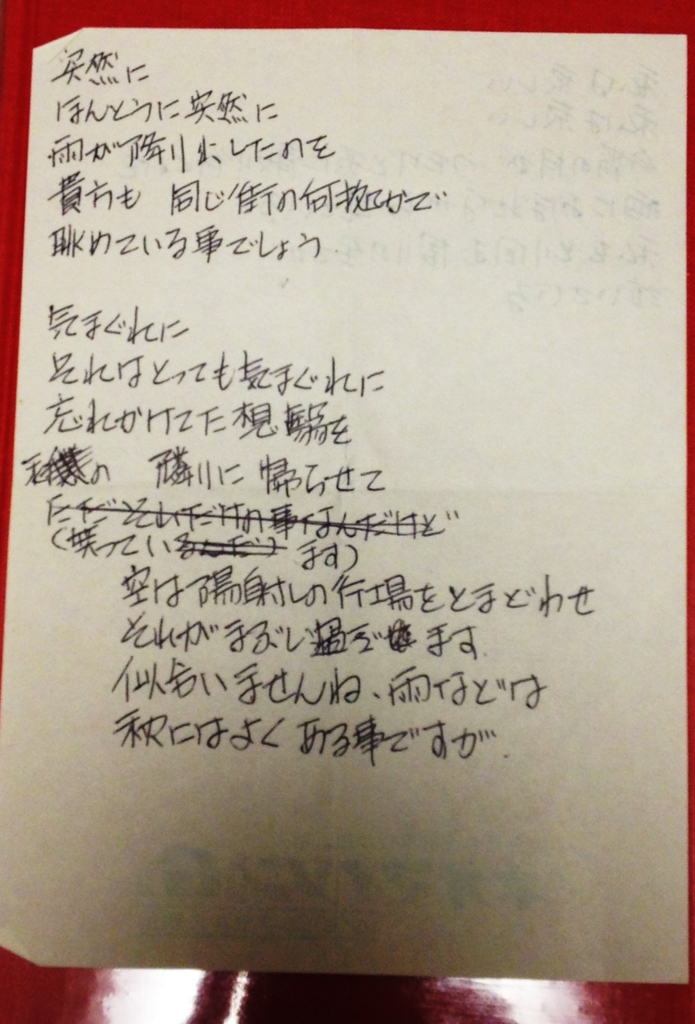 突然に
ほんとうに突然に
雨が降り出したのを
貴方も 同じ街の何拠かで
眺めている事でしょう
気まぐれに
それはとっても気まぐれに
忘れかけてた想
の 隣りに帰らせて
ただそれだけの事なんだけど
(笑っているんだ) ます)
空は陽射しの行場をとまどわせ
それがまぶし過ぎます
似合いませんね、雨などは
秋にはよくある事ですが